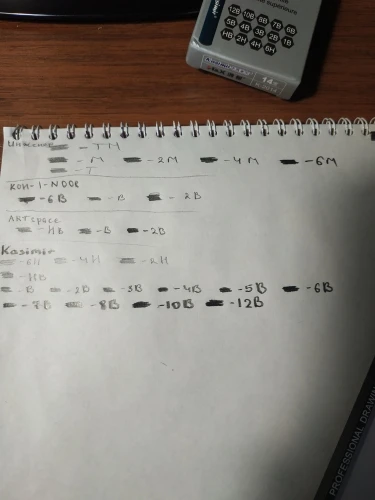 12B 10B 8B 7B 6B
5B 4B 3B 2B 1B
HB 2H 4H 6H
- TM
- M - 2M - 4M - 6M
- T
КОН-I-NOOR
- 6B - B - 2B
ARTspace
- HB - B - 2B
Kasimir
- 6H - 4H - 2H
- HB
- B - 2B - 3B - 4B - 5B - 6B
- 7B - 8B - 10B - 12B
PROFESSIONAL DRAWIN